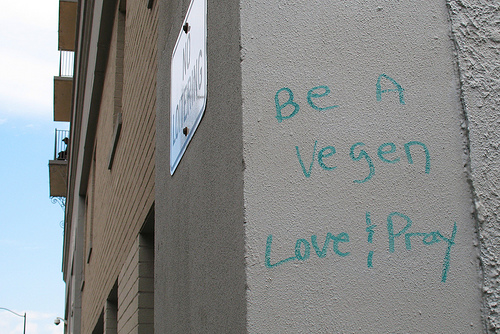 NO
LOITERING
Be A
Vegen
Love & Pray